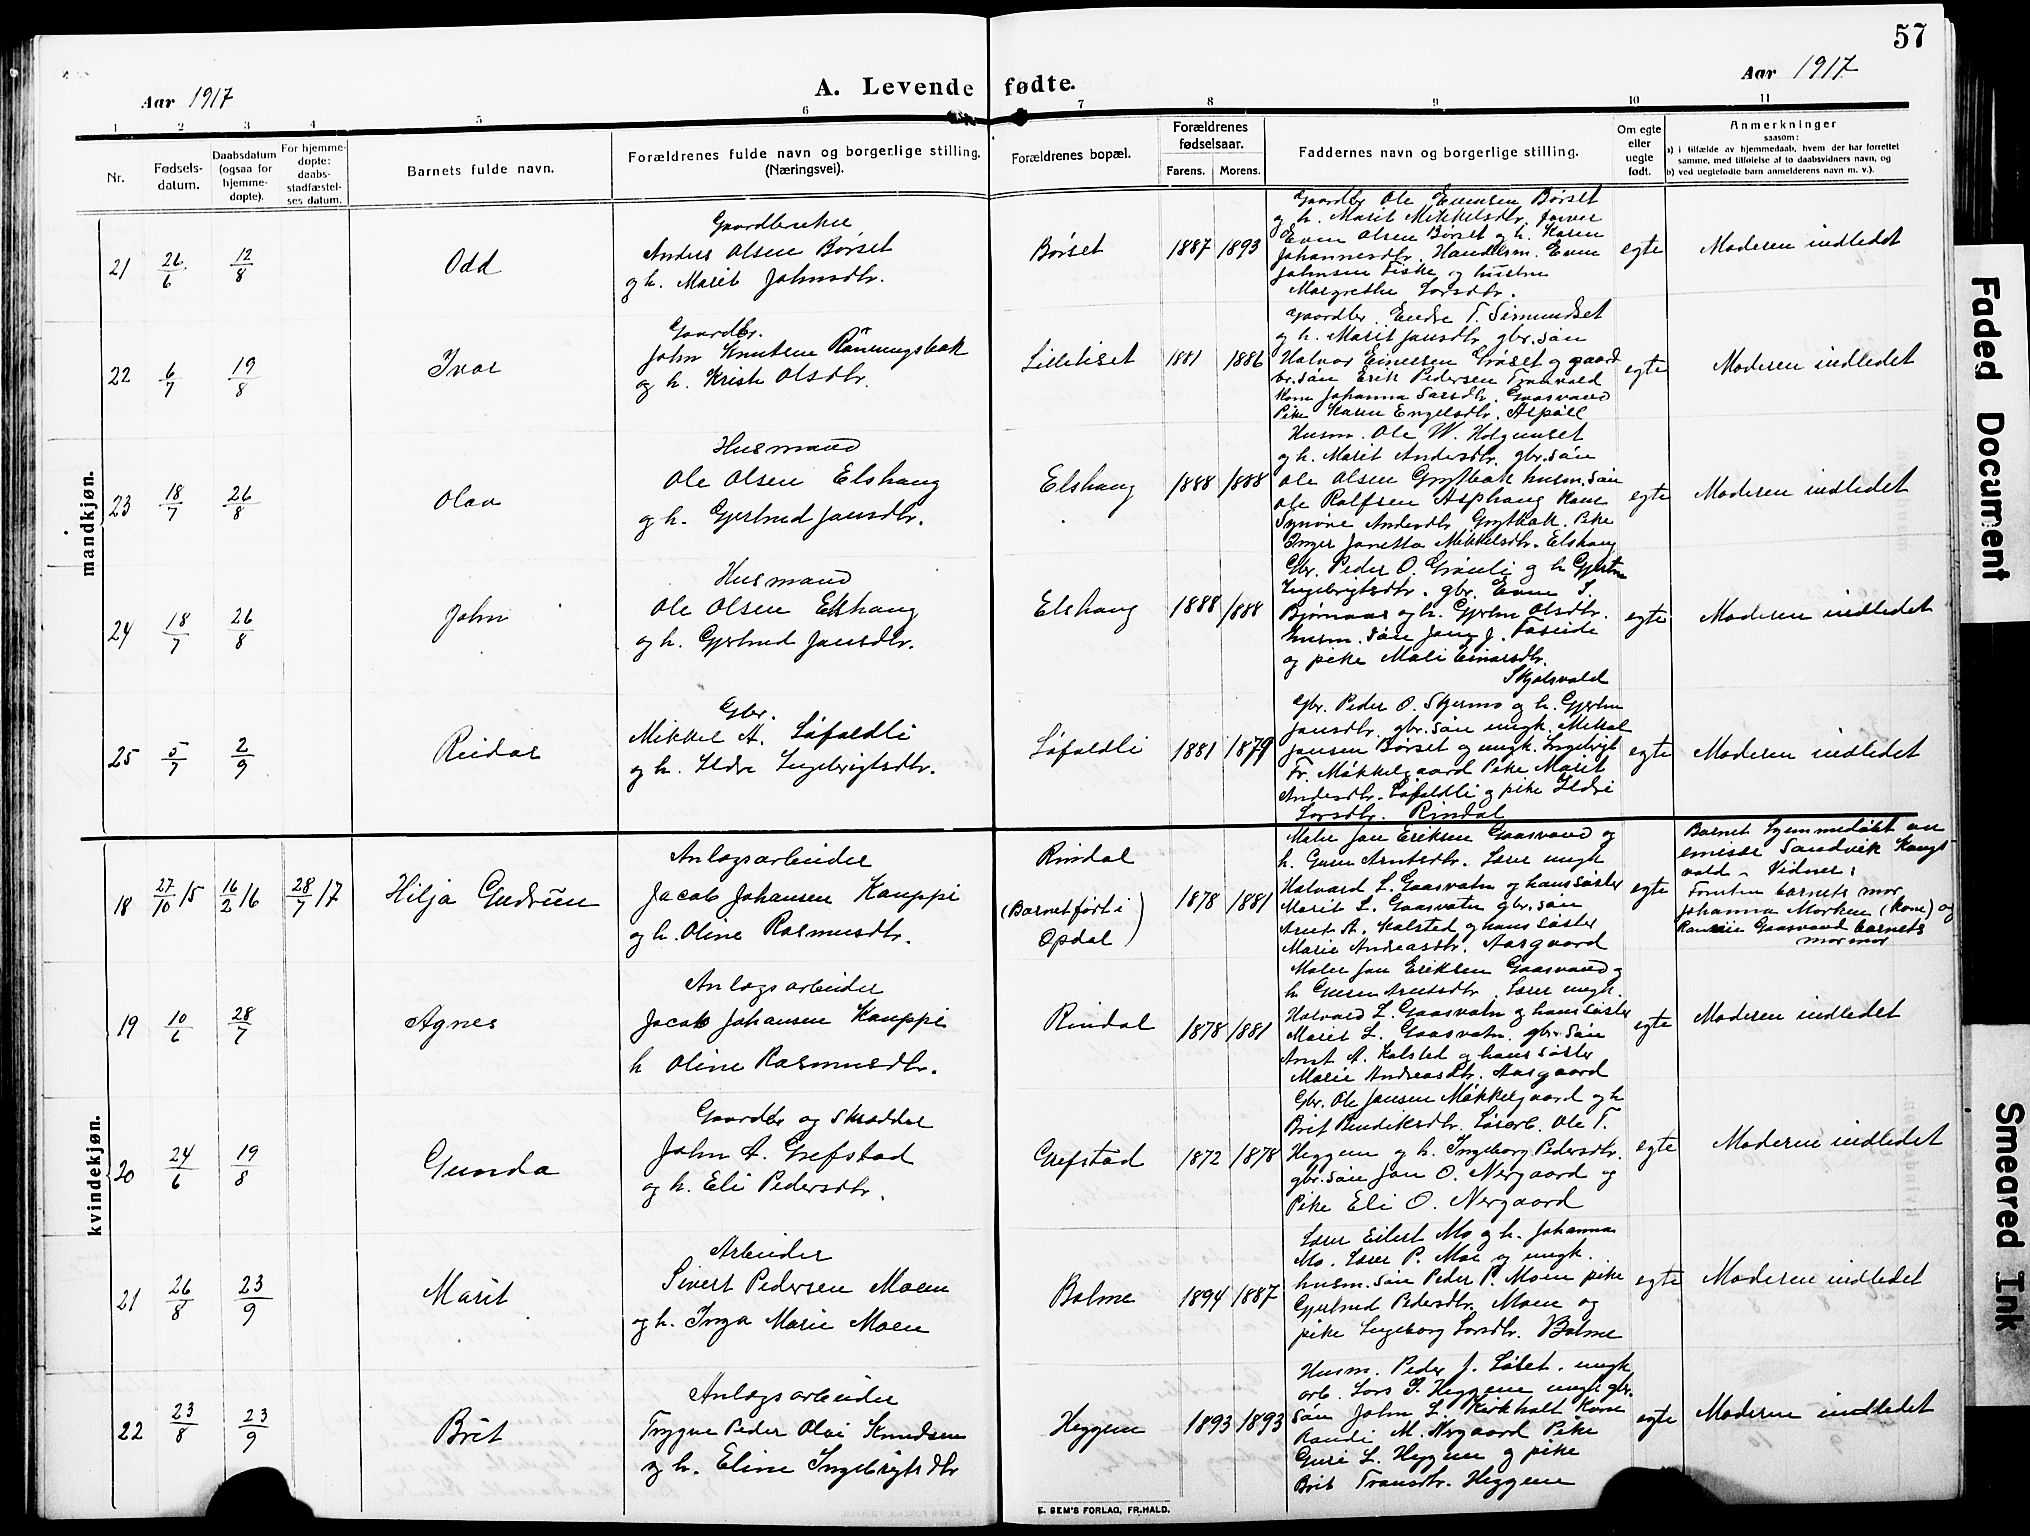 57
Aar 1917
A. Levende fødte.
Aar 1917
1 2 3 4 5 6 7 8 9 10 11
Nr.
Fødsels-
datum.
Daabsdatum
(ogsaa for
hjemme-
døpte).
For hjemme-
døpte:
daabs-
stadfæstel-
ses datum.
Barnets fulde navn.
Forældrenes fulde navn og borgerlige stilling.
(Næringsvei).
Forældrenes bopæl.
Forældrenes
fødselsaar.
Farens. Morens.
Faddernes navn og borgerlige stilling.
Om egte
eller
uegte
født.
Anmerkninger
saasom:
a) i tilfælde av hjemmedaab, hvem der har forrettet
samme, med tilføielse af to daabsvidners navn, og
b) ved uegtefødte barn anmelderens navn m. v.).
mandkjøn.
21 26/6 12/8 Odd
Gaardbruker
Anders Olsen Børset
og h. Marit Johnsdtr.
Børset 1887 1893
Gaardbr Ole Evensen Børset
og h. Marit Mikkelsdtr. Farver
Even Olsen Børset og h. Karen
Johannesdtr. Handelsm. Even
Johnsen Fiske og hustru
Margrethe Larsdtr.
egte Moderen indledet
22 6/7 19/8 Ivar
Gaardbr.
John Knutsen Rønningsbak
og h. Kristi Olsdtr.
Lilletiset 1881 1886
Gaardbr. Endre T. Simundset
og h. Marit Jansdtr gbr. søn
Halvor Einersen Grøset og gaard
br. søn Erik Pedersen Tranvald
Kone Johanna Larsdtr. Gaasvand
Pike Karen Engelsdtr. Aspøll
egte Moderen indledet
23 18/7 26/8 Olav
Husmand
Ole Olsen Elshaug
og h. Gjertrud Jansdtr.
Elshaug 1888 1888
Husm. Ole W. Holgunset
og h. Marit Andersdtr. gbr. søn
Ole Olsen Grytbak husm. søn
Ole Rolfsen Asphaug Kone
Synøve Andersdtr Grytbak. Pike
Inger Janetta Mikkelsdtr. Elshaug
egte Moderen indledet
24 18/7 26/8 John
Husmand
Ole Olsen Elshaug
og h. Gjertrud Jansdtr.
Elshaug 1888 1888
Gbr. Peder O. Grønli og h Gjertru
Ingebrigtsdtr. gbr. Even S.
Bjørnaas og h. Gjertru Olsdtr.
husm. søn Jang J. Faseide
og pike Mali Einarsdtr.
Skjølsvold
egte Moderen indledet
25 5/7 2/9 Reidar
Gbr.
Mikkel A. Løfaldli
og h. Ildri Ingebrigtsdtr.
Løfaldli 1881 1879
Gbr. Peder O. Skjermo og h. Gjertru
Jansdtr. gbr. søn ungk. Mikkel
Jansen Børset og ungk. Ingebrigt
Fr. Møkkelgaard Pike Marit
Andersdtr. Løfaldli og pike Ildri
Larsdtr. Rindal
egte Moderen indledet
kvindekjøn.
18 27/10 15 16/2 16 28/7 17 Hilja Gudrun
Anlægsarbeider
Jacob Johansen Kauppi
og h. Oline Rasmusdtr.
Rindal
(Barnet født i
Opdal)
1878 1881
Maler Jan Eriksen Gaasvand og
h. Guren Arntsdtr. Lærer ungk
Halvard L. Gaasvatn og hans søster
Marit L. Gaasvatn gbr. søn
Arnt A. Kalsted og hans søster
Marie Andreasdtr. Aasgaard
egte
Barnet hjemmedøbt av
emissær Sandvik Kongs
vold – Vidner:
Foruten barnets mor
Johanna Morken (Kone) og
Gaasvand barnets
mormor
19 10/6 28/7 Agnes
Anlægsarbeider
Jacob Johansen Kauppi
h Oline Rasmusdtr.
Rindal 1878 1881
Maler Jan Eriksen Gaasvand og
h Guren Arntsdtr. Lærer ungk.
Halvard L. Gaasvatn og hans søster
Marit L. Gaasvatn. gbr. søn
Arnt A. Kalsted og hans søster
Marie Andreasdtr. Aasgaard
egte Moderen indledet
20 24/6 19/8 Gunda
Gaardbr og skrædder
John A. Grefstad
og h. Eli Pedersdtr.
Grefstad 1872 1878
Gbr. Ole Jansen Møkkelgaard og h
Brit Bendiksdtr. Løsarb. Ole T.
Heggem og h. Ingeborg Pedersdtr.
gbr. søn Jan O. Nergaard og
Pike Eli O. Nergaard
egte Moderen indledet
21 26/8 23/9 Marit
Arbeider
Sivert Pedersen Moen
og h. Inga Marie Moen
Bolme 1894 1887
Lærer Eilert Mo og h. Johanna
Mo. Lærer P. Moe og ungk.
husm. søn Peder P. Moen pike
Gjertrud Pedersdtr. Moen og
pike Ingeborg Larsdtr. Bolme
egte Moderen indledet
22 23/8 23/9 Brit
Anlægsarbeider
Trygve Peder Olai Knudsen
og h. Eline Ingebrigtsdtr
Heggem 1893 1893
Husm. Peder J. Løset. ungk
arb. Lars T. Heggem ungk gbr.
søn John L. Kirkholt Kone
Randi M. Nergaard Pike
Guri L. Heggem og pike
Brit Transdtr. Heggem
egte Moderen indledet
E. SEM'S FORLAG, FR.HALD.
Faded Document
Smeared Ink